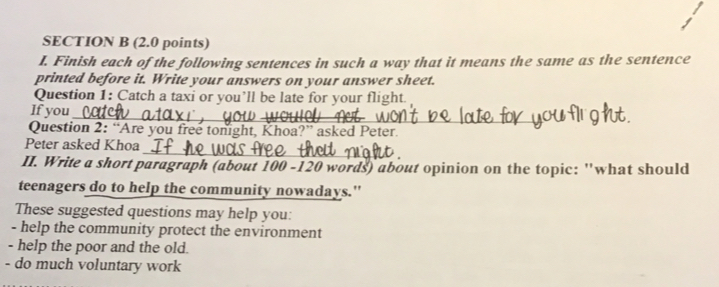 SECTION B (2.0 points)
I. Finish each of the following sentences in such a way that it means the same as the sentence
printed before it. Write your answers on your answer sheet.
Question 1: Catch a taxi or you'll be late for your flight.
If you catch a taxi, you would not won't be late for you flight.
Question 2: "Are you free tonight, Khoa?" asked Peter.
Peter asked Khoa If he was free that night.
II. Write a short paragraph (about 100 -120 words) about opinion on the topic: "what should
teenagers do to help the community nowadays."
These suggested questions may help you:
- help the community protect the environment
- help the poor and the old.
- do much voluntary work